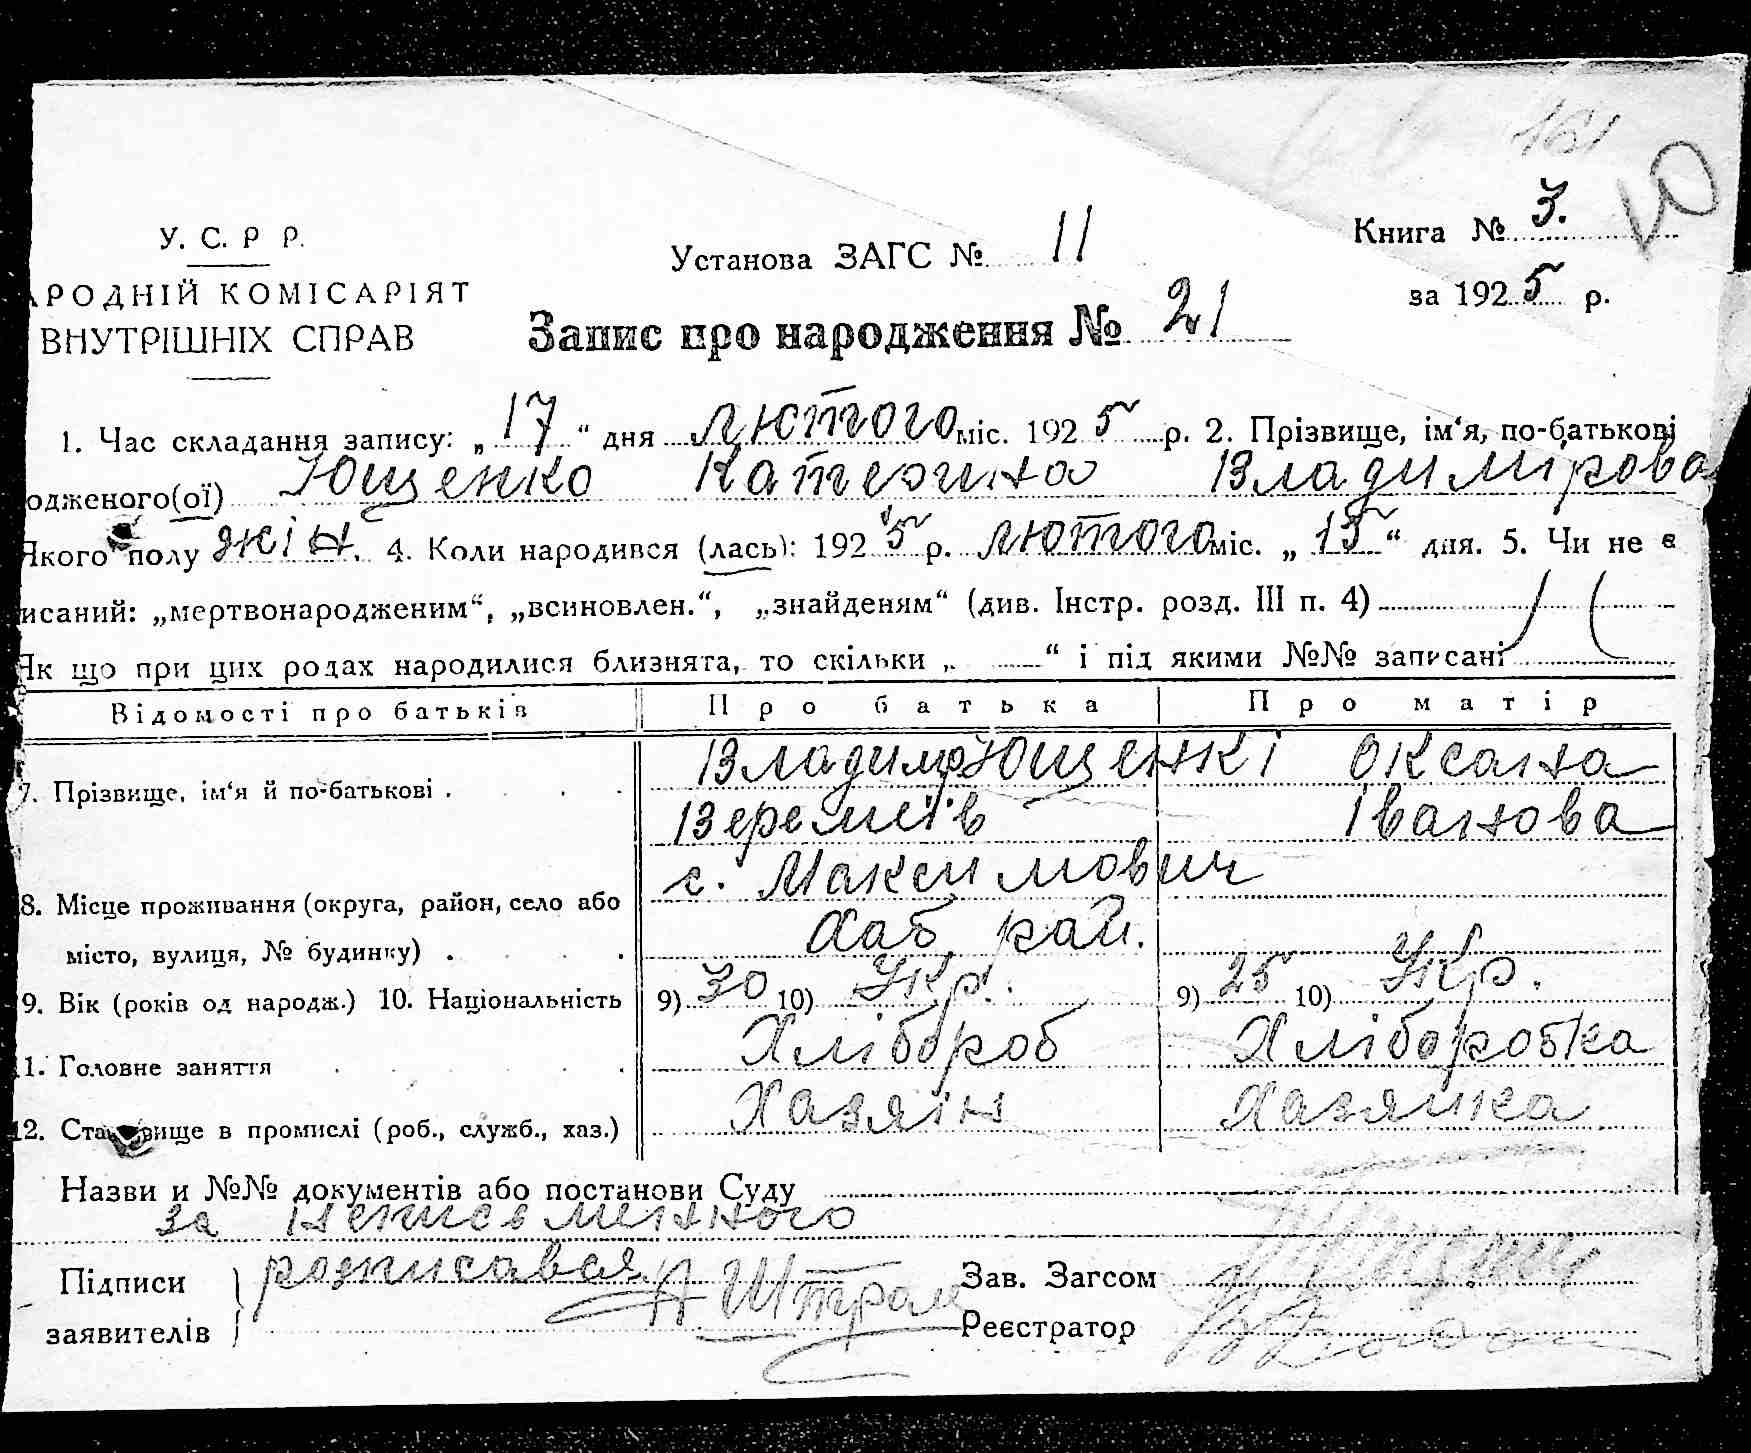 161
У. С. Р Р.
Установа ЗАГС № 11
Книга № 3.
АРОДНІЙ КОМІСАРІЯТ
за 1925 р.
ВНУТРІШНІХ СПРАВ
Запис про народження № 21
1. Час складання запису: „17“ дня лютого міс. 1925 р. 2. Прізвище, ім‘я, по-батькові
одженого(ої) Ющенко Катерина Владимірова
Якого полу жін. 4. Коли народився (лась): 1925 р. лютого міс. „15“ дня. 5. Чи не є
исаний: „мертвонародженим“, „всиновлен.“, „знайденям“ (див. Інстр. розд. III п. 4)
Як що при цих родах народилися близнята, то скільки „ “ і під якими №№ записані
Відомості про батьків Про батька Про матір
7. Прізвище, ім‘я й по-батькові . Владимір Ющенкі Оксана
Веремїів Іванова
с. Максимович
8. Місце проживання (округа, район, село або
Хаб. рай.
місто, вулиця, № будинку) .
9. Вік (років од народж.) 10. Національність 9) 30 10) Укр. 9) 25 10) Укр.
11. Головне заняття Хлібороб Хліборобка
12. Становище в промислі (роб., служб., хаз.) Хазяїн Хазяйка
Назви и №№ документів або постанови Суду
за Неписьменного
Підписи розписався Зав. Загсом
заявителів Реєстратор